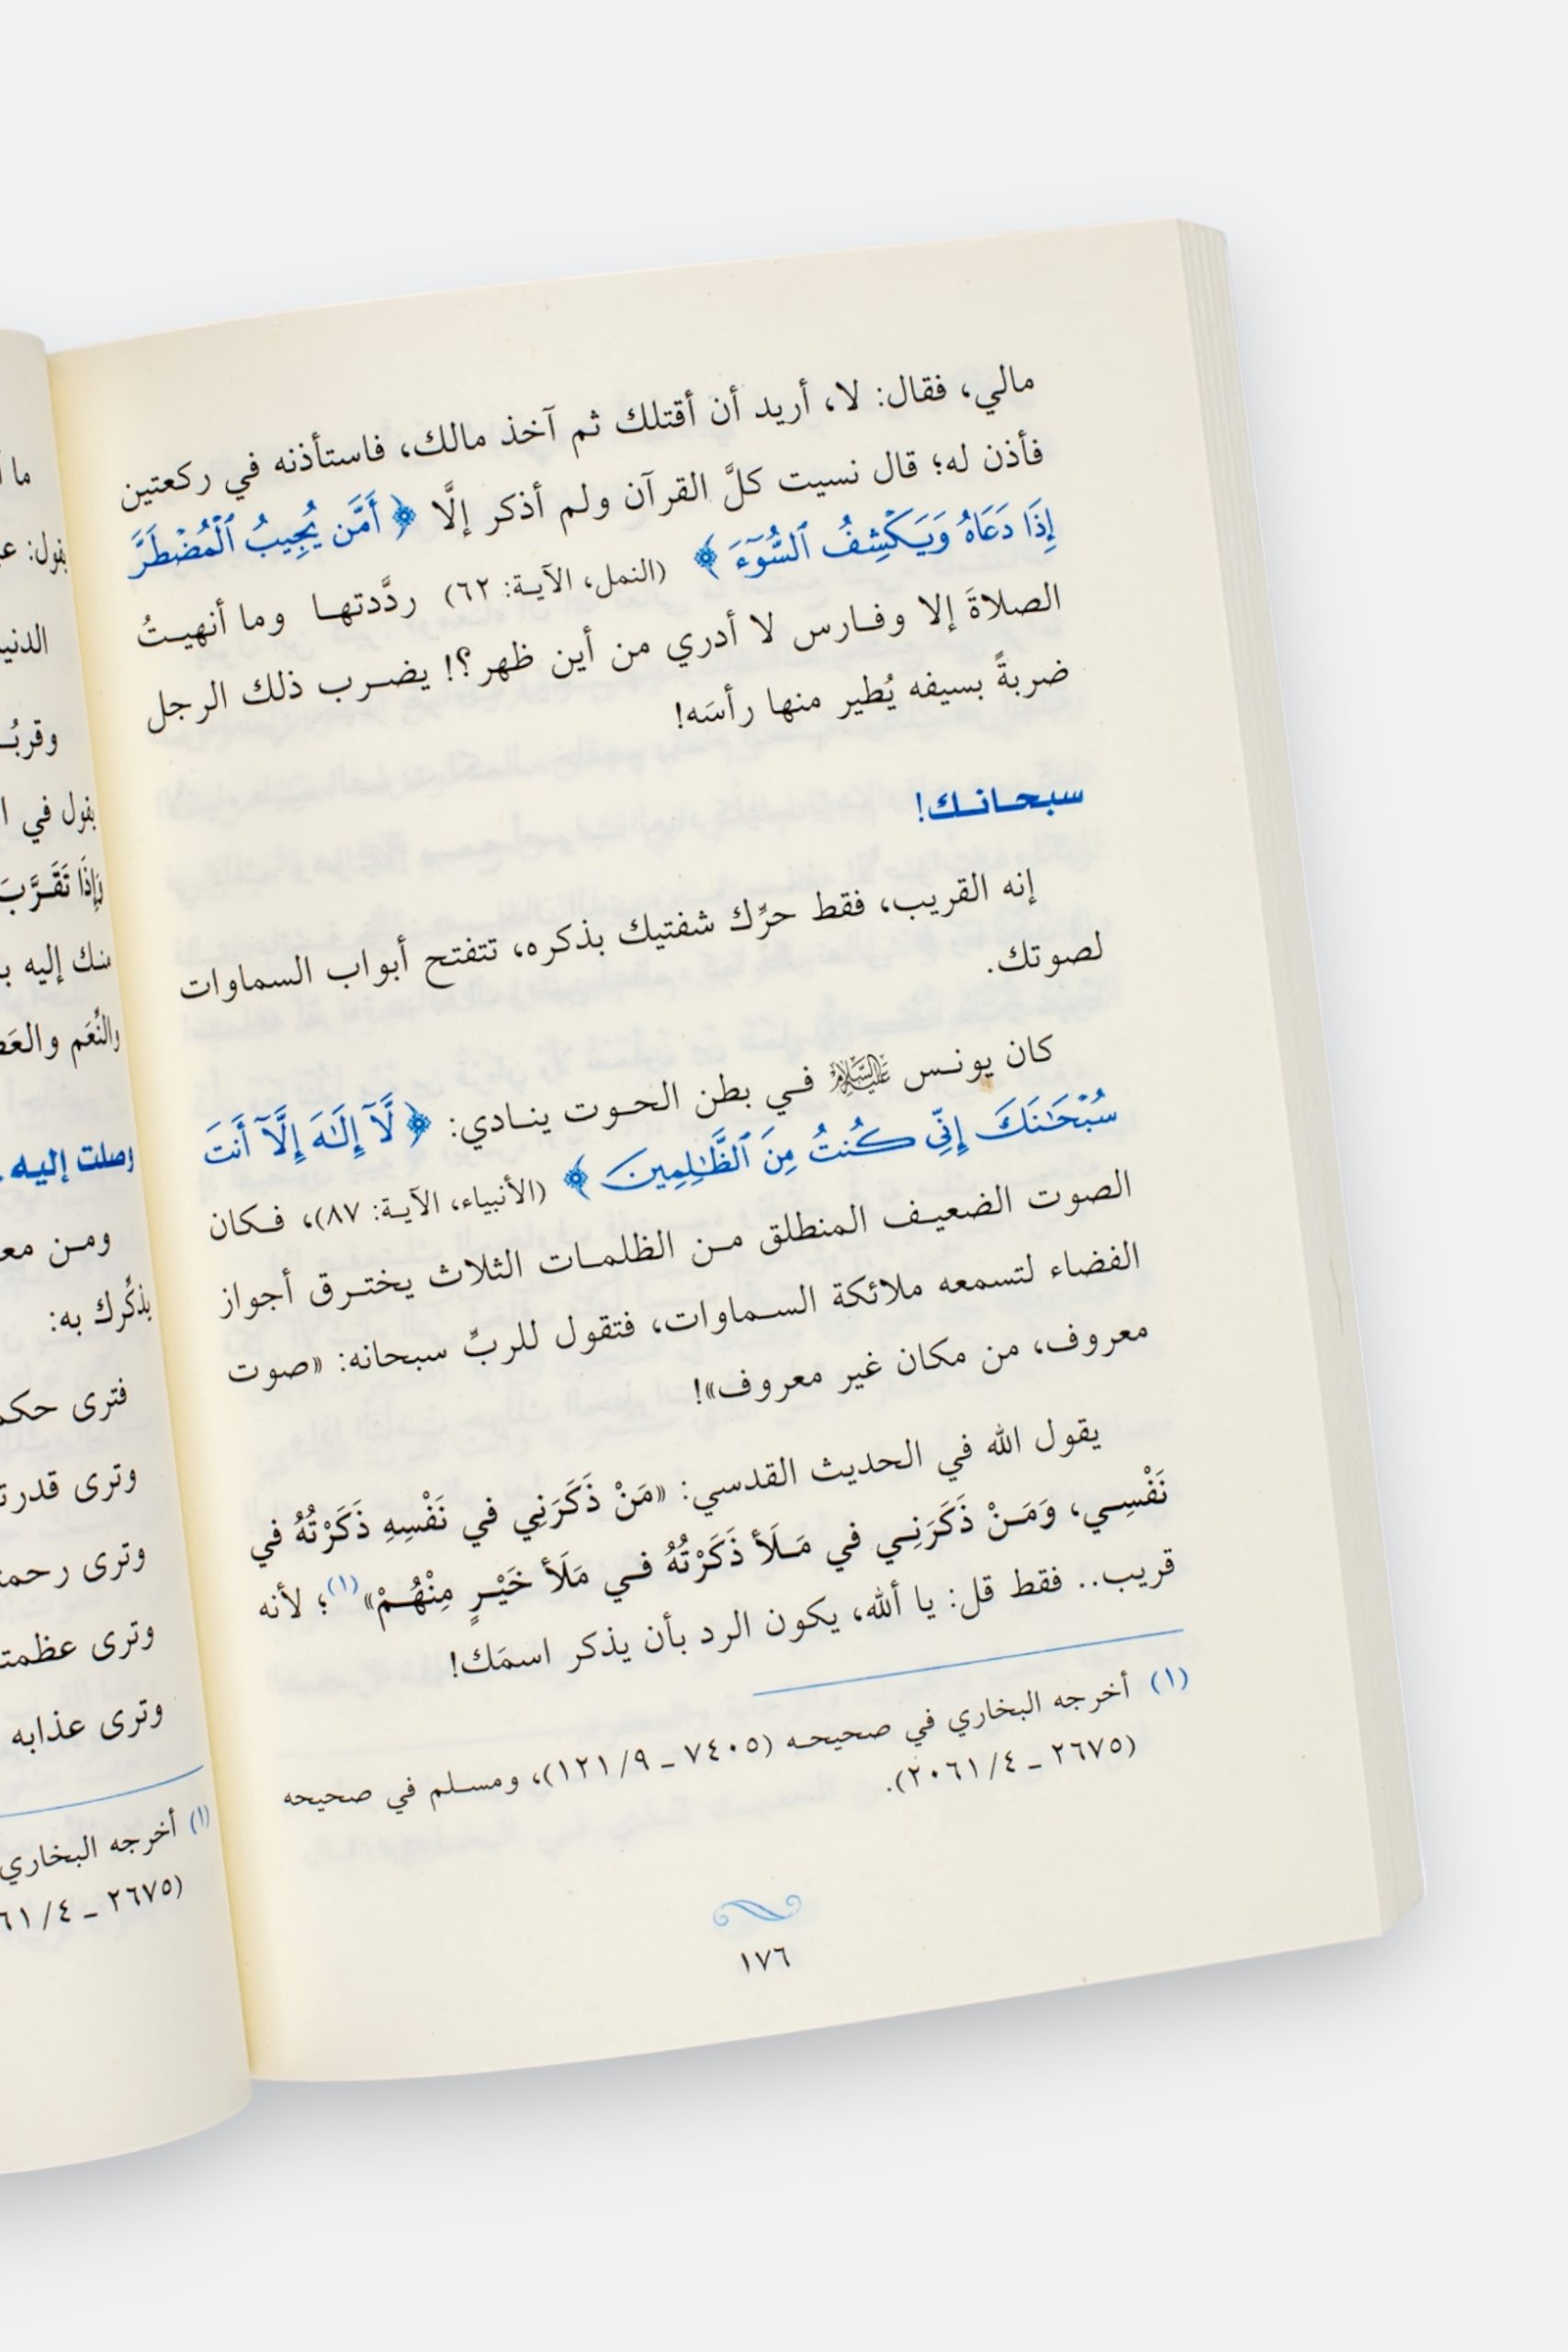 مالي، فقال: لا، أريد أن أقتلك ثم آخذ مالك، فاستأذنه في ركعتين
فأذن له؛ قال نسيت كلَّ القرآن ولم أذكر إلَّا ﴿ أَمَّن يُجِيبُ ٱلْمُضْطَرَّ
إِذَا دَعَاهُ وَيَكْشِفُ ٱلسُّوٓءَ ﴾ (النمل، الآية: ٦٢) ردَّدتها وما أنهيتُ
الصلاةَ إلا وفارس لا أدري من أين ظهر؟! يضرب ذلك الرجل
ضربةً بسيفه يُطير منها رأسَه!
سبحانك!
إنه القريب، فقط حرِّك شفتيك بذكره، تتفتح أبواب السماوات
لصوتك.
كان يونس عَلَيْهِ السَّلَام في بطن الحوت ينادي: ﴿ لَّآ إِلَٰهَ إِلَّآ أَنتَ
سُبْحَٰنَكَ إِنِّي كُنتُ مِنَ ٱلظَّٰلِمِينَ ﴾ (الأنبياء، الآية: ٨٧)، فكان
الصوت الضعيف المنطلق من الظلمات الثلاث يخترق أجواز
الفضاء لتسمعه ملائكة السماوات، فتقول للربِّ سبحانه: «صوت
معروف، من مكان غير معروف»!
يقول الله في الحديث القدسي: «مَنْ ذَكَرَنِي في نَفْسِهِ ذَكَرْتُهُ في
نَفْسِي، وَمَنْ ذَكَرَنِي في مَلَأ ذَكَرْتُهُ في مَلَأ خَيْرٍ مِنْهُمْ»(١)؛ لأنه
قريب.. فقط قل: يا ألله، يكون الرد بأن يذكر اسمَك!
(١) أخرجه البخاري في صحيحه (٧٤٠٥ ـ ١٢١/٩)، ومسلم في صحيحه
(٢٦٧٥ ـ ٢٠٦١/٤).
١٧٦
ما
الدنيا
يقول في
وَإِذَا تَقَرَّبَ
منك إليه
والنِّعَم
وصلت إليه
ومن
يذكِّرك به:
فترى
وترى
وترى
وترى
وترى عذابه
(١) أخرجه البخاري
(٢٦٧٥ ـ